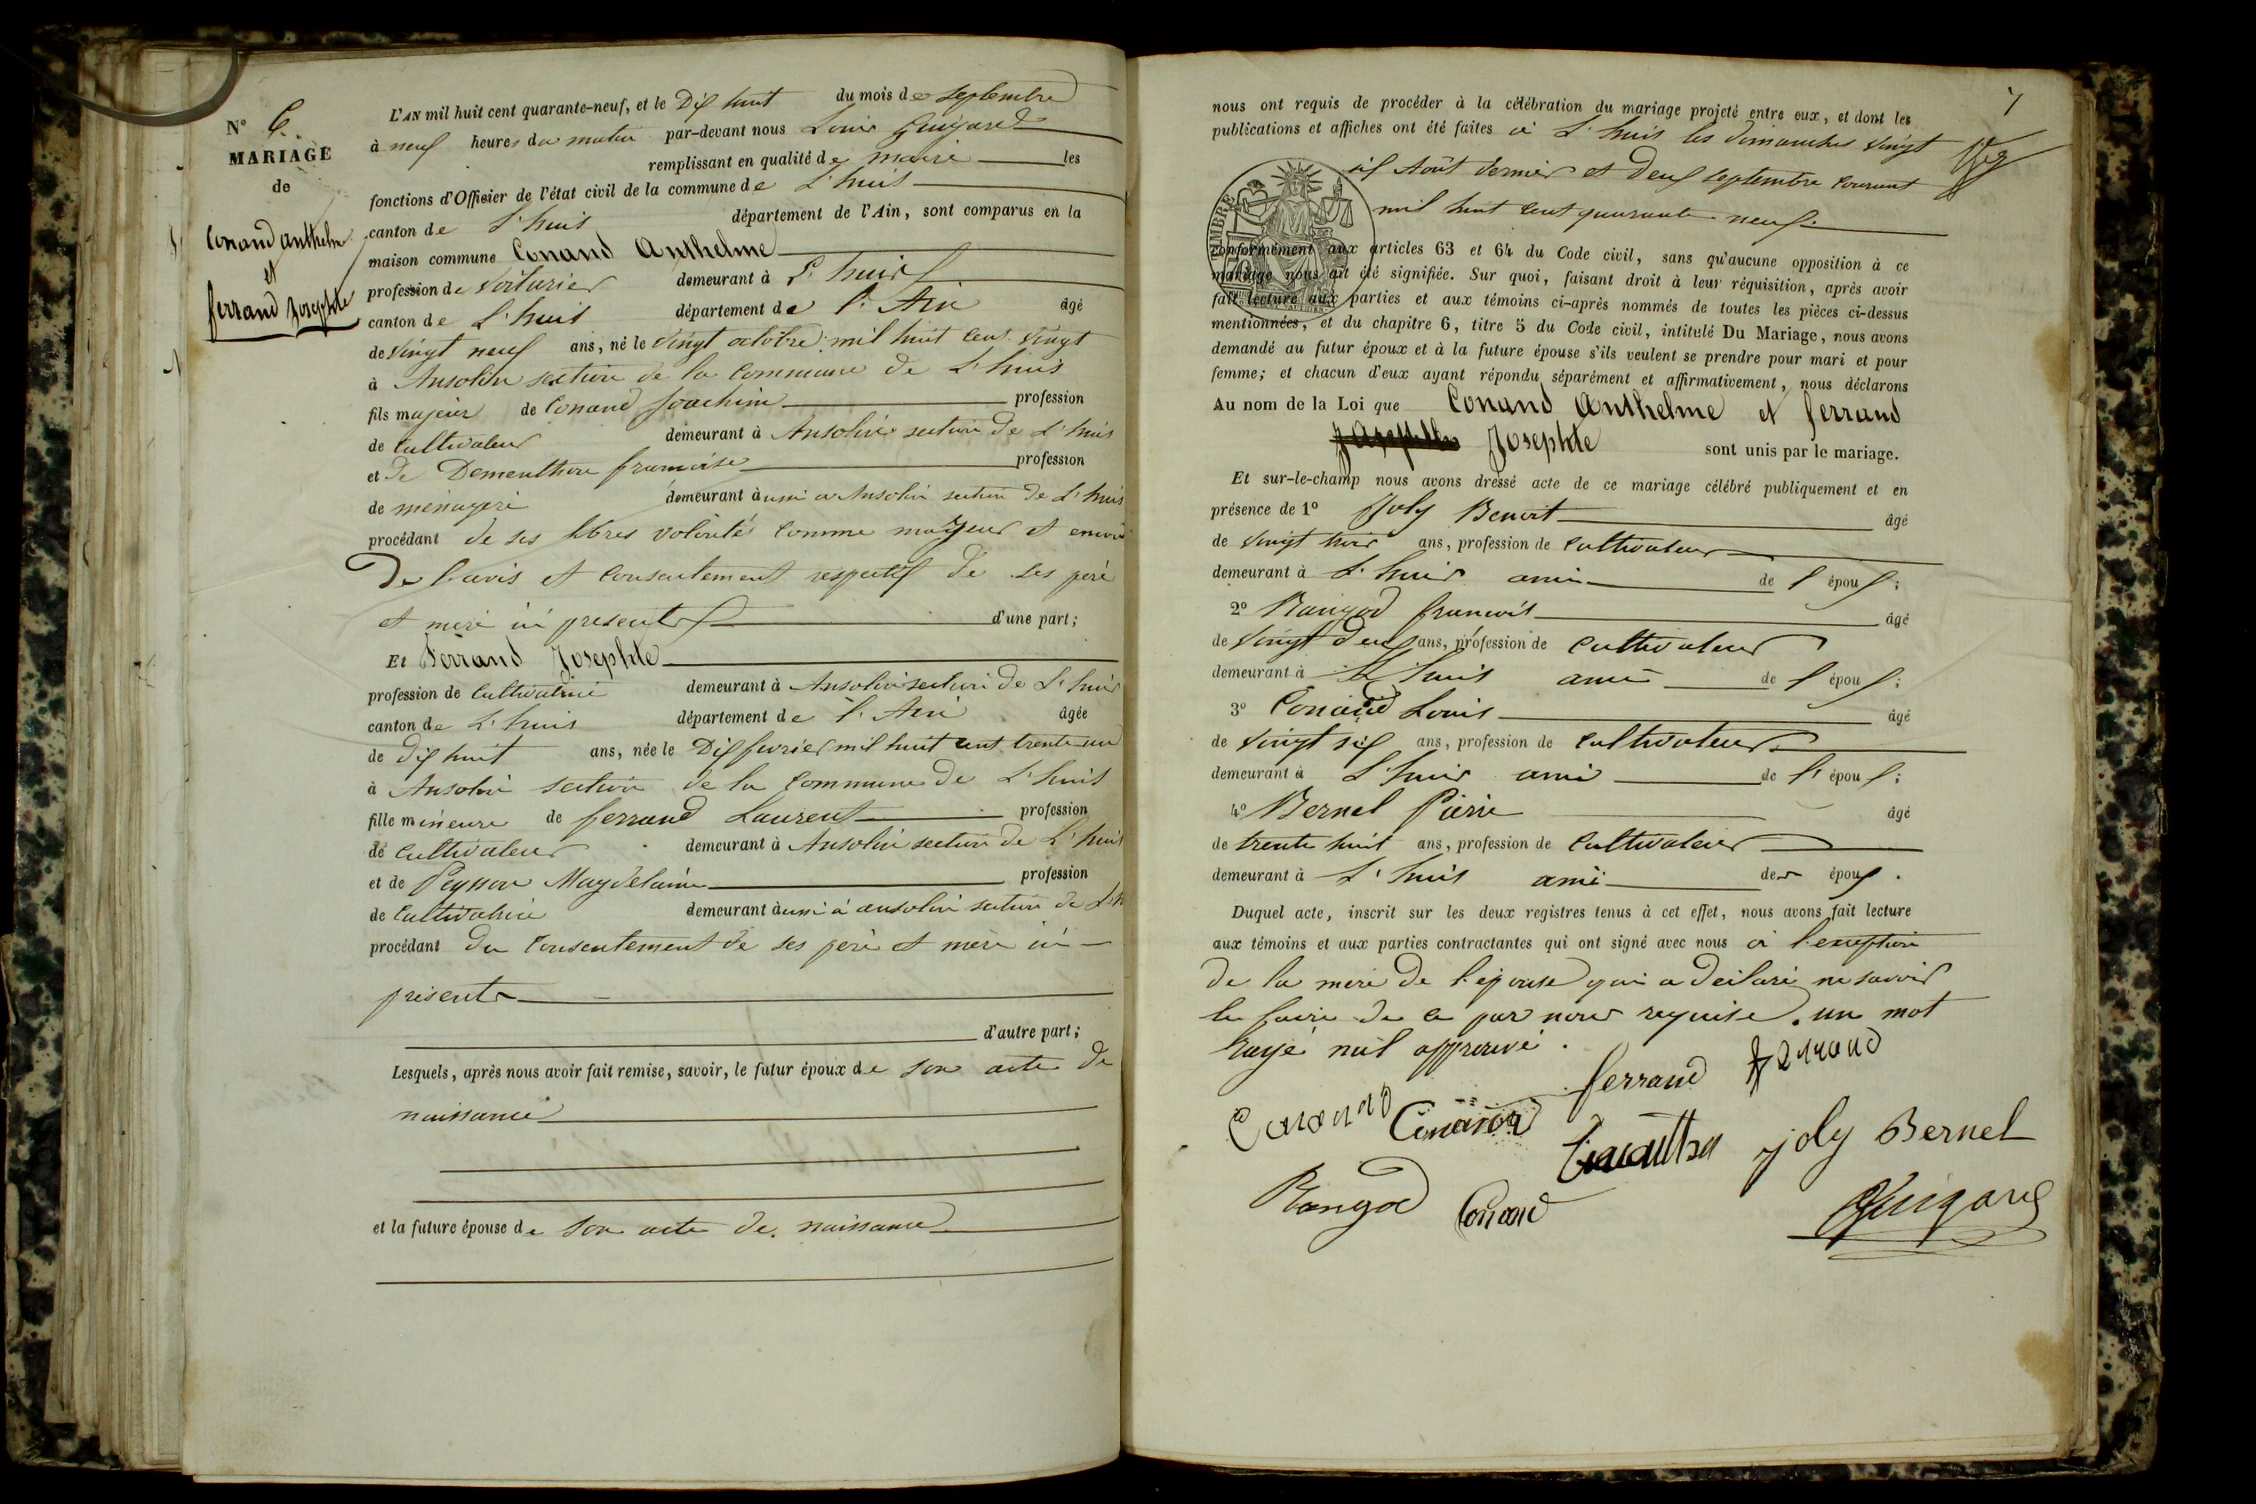 N° 6.
MARIAGE
de
Conand Anthelme
et
ferrand Josephte
L'AN mil huit cent quarante-neuf, et le Dix huit du mois de Septembre
à neuf heures du matin par-devant nous Louis Guigard
remplissant en qualité de maire les
fonctions d'Officier de l'état civil de la commune de L'huis
canton de L'huis département de l'Ain, sont comparus en la
maison commune Conand Anthelme
profession de Voiturier demeurant à L'huis
canton de L'huis département de l'Ain âgé
de Vingt neuf ans, né le Vingt octobre mil huit cent Vingt
à Ansolin section de la Commune de L'huis
fils majeur de Conand Joachim profession
de Cultivateur demeurant à Ansolin section de L'huis
et de Dementhon francoise profession
de menagere demeurant aussi a Ansolin section de L'huis
procédant de ses libres volontés comme majeur et encore
De l'avis et consentement respectif de ses père
et mere ici presents d'une part;
Et Ferrand Josephte
profession de Cultivatrice demeurant à Ansolin section de L'huis
canton de L'huis département de l'Ain âgée
de dix huit ans, née le Dix fevrier mil huit cent trente un
à Ansolin section de la Commune de L'huis
fille mineure de ferrand Laurent profession
de Cultivateur demeurant à Ansolin section de L'huis
et de Peysson Magdelaine profession
de Cultivatrice demeurant aussi à ansolin section de L'h
procédant du Consentement de ses père et mère ici
présents
d'autre part;
Lesquels, après nous avoir fait remise, savoir, le futur époux de son acte de
naissance
et la future épouse de son acte de naissance
7
nous ont requis de procéder à la célébration du mariage projeté entre eux, et dont les
publications et affiches ont été faites à L'huis les dimanches Vingt
six Août dernier et Deux Septembre Courant
mil huit cent quarante neuf.
conformément aux articles 63 et 64 du Code civil, sans qu'aucune opposition à ce
mariage nous ait été signifiée. Sur quoi, faisant droit à leur réquisition, après avoir
fait lecture aux parties et aux témoins ci-après nommés de toutes les pièces ci-dessus
mentionnées, et du chapitre 6, titre 5 du Code civil, intitulé Du Mariage, nous avons
demandé au futur époux et à la future épouse s'ils veulent se prendre pour mari et pour
femme; et chacun d'eux ayant répondu séparément et affirmativement, nous déclarons
Au nom de la Loi que Conand Anthelme et ferrand
Josephte sont unis par le mariage.
Et sur-le-champ nous avons dressé acte de ce mariage célébré publiquement et en
présence de 1° Joly Benoit âgé
de Vingt trois ans, profession de Cultivateur
demeurant à L'huis ami de l'époux;
2° Rangod francois âgé
de Vingt deux ans, profession de Cultivateur
demeurant à L'huis ami de l'époux;
3° Conand Louis âgé
de Vingt six ans, profession de Cultivateur
demeurant à L'huis ami de l'époux;
4° Bernel Pierre âgé
de trente huit ans, profession de Cultivateur
demeurant à L'huis ami des époux.
Duquel acte, inscrit sur les deux registres tenus à cet effet, nous avons fait lecture
aux témoins et aux parties contractantes qui ont signé avec nous à l'exception
de la mere de l'épouse qui a déclaré ne savoir
le faire de ce par nous requise. un mot
rayé nul approuvé.
ferrand ferrand
Conand Conand
joly Bernel
Rangod Conand
Guigard